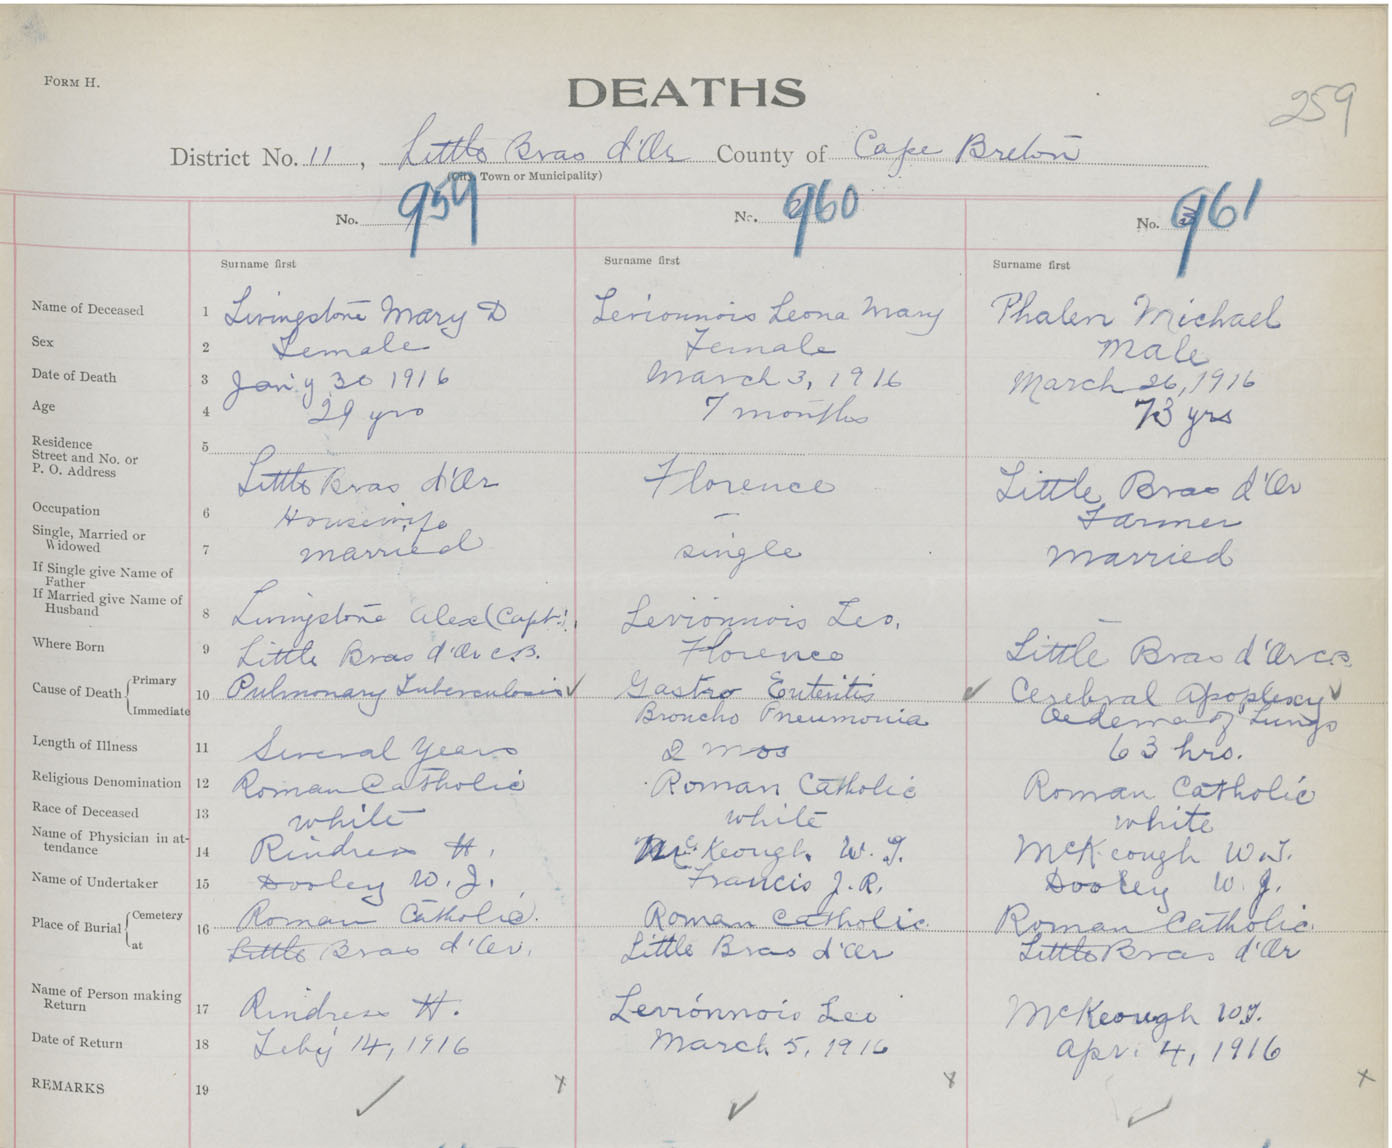 FORM H.
DEATHS
259
District No. 11, Little Bras d'Or County of Cape Breton
(City, Town or Municipality)
No. 959 No. 960 No. 961
Surname first Surname first Surname first
Name of Deceased 1 Livingstone Mary D Levionnois Leona Mary Phalen Michael
Sex 2 Female Female Male
Date of Death 3 Jan'y 30 1916 March 3, 1916 March 26, 1916
Age 4 29 yrs 7 months 73 yrs
Residence 5
Street and No. or
P. O. Address Little Bras d'Or Florence Little Bras d'Or
Occupation 6 Housewife — Farmer
Single, Married or
Widowed 7 married single married
If Single give Name of
Father
If Married give Name of
Husband 8 Livingstone Alex (Capt.) Levionnois Leo. –
Where Born 9 Little Bras d'Or C.B. Florence Little Bras d'Or C.B.
Cause of Death { Primary 10 Pulmonary Tuberculosis ✓ Gastro Enteritis ✓ Cerebral Apoplexy ✓
Immediate Broncho Pneumonia Oedema of Lungs
Length of Illness 11 Several Years 2 mos 63 hrs.
Religious Denomination 12 Roman Catholic Roman Catholic Roman Catholic
Race of Deceased 13 white white white
Name of Physician in at-
tendance 14 Rindress H. McKeough W. J. McKeough W. J.
Name of Undertaker 15 Dooley W. J. Francis J. R. Dooley W. J.
Place of Burial { Cemetery 16 Roman Catholic. Roman Catholic. Roman Catholic.
at Little Bras d'Or. Little Bras d'Or Little Bras d'Or
Name of Person making
Return 17 Rindress H. Levrónnois Leo McKeough W.J.
Date of Return 18 Feb'y 14, 1916 March 5, 1916 Apr. 4, 1916
REMARKS 19 ✓ x ✓ x ✓ x